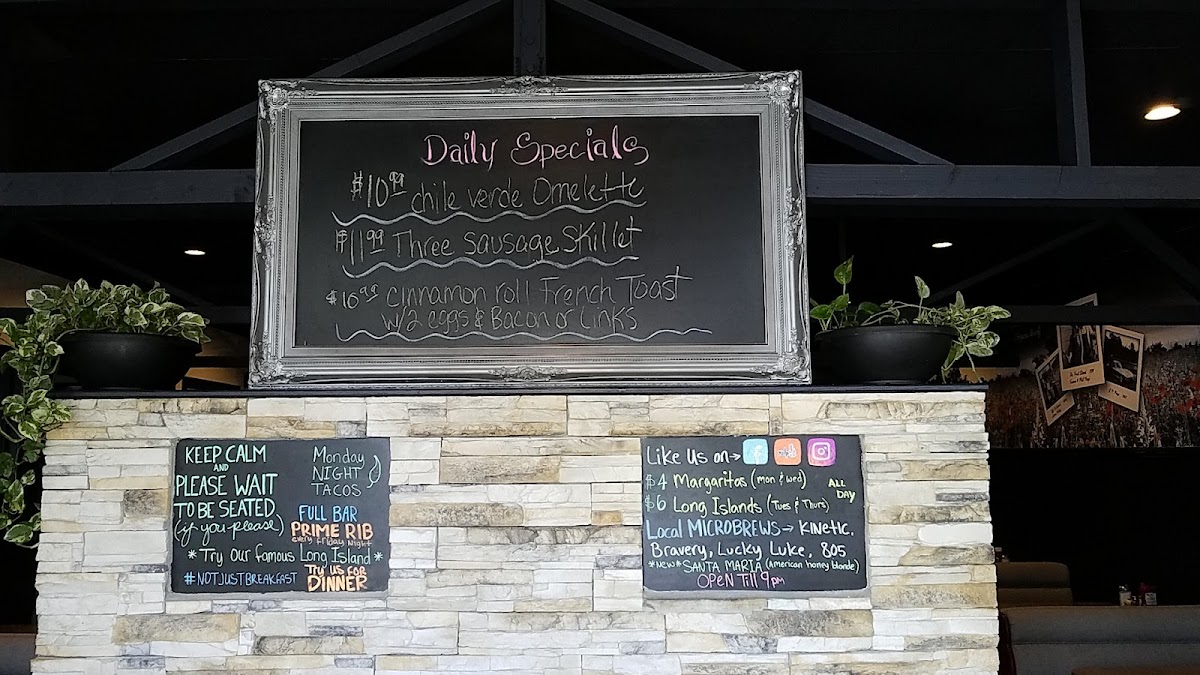 Daily Specials
$10.99 chile verde Omelette
$11.99 Three Sausage Skillet
$10.99 cinnamon roll French Toast
w/2 eggs & Bacon or Links
KEEP CALM
AND
PLEASE WAIT
TO BE SEATED
(if you please)
Monday
NIGHT
TACOS
FULL BAR
PRIME RIB
every Friday Night
*Try Our famous Long Island*
#NOTJUSTBREAKFAST
TRY US FOR
DINNER
Like Us on→
$4 Margaritas (mon & wed)
$6 Long Islands (Tues & Thurs)
ALL
DAY
Local MICROBREWS→ KINETIC,
Bravery, Lucky Luke, 805
*NEW* SANTA MARIA (American honey blonde)
OPEN Till 9pm